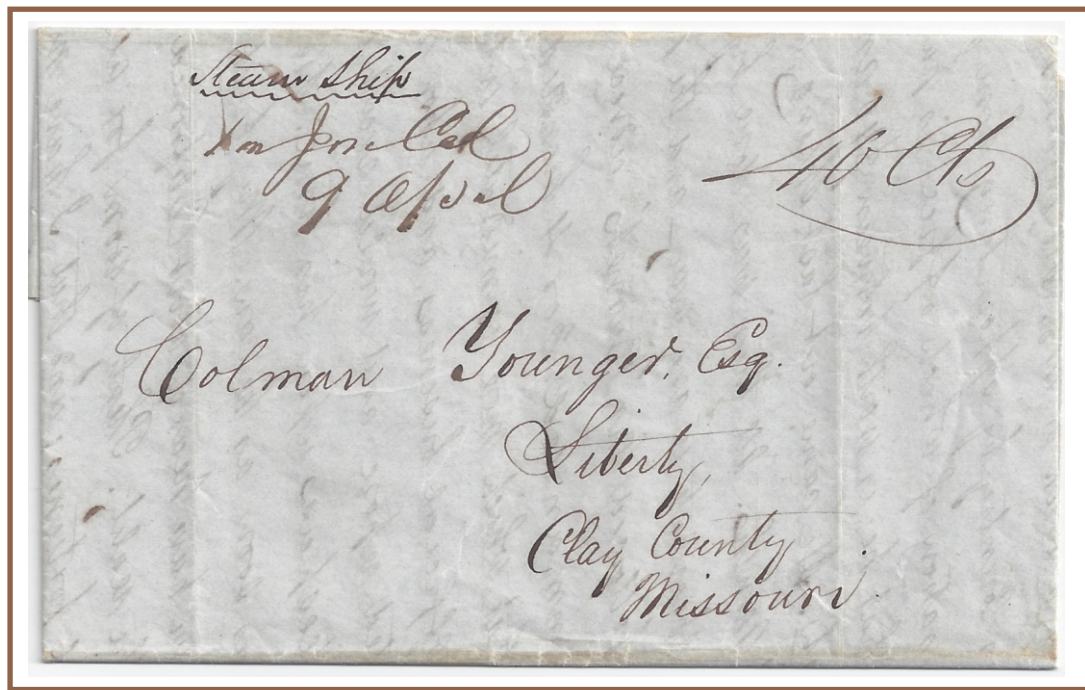 Steam Ship
San Jose Cal
9 Apral
40 Cts
Colman Younger, Esq.
Liberty,
Clay County
Missouri.